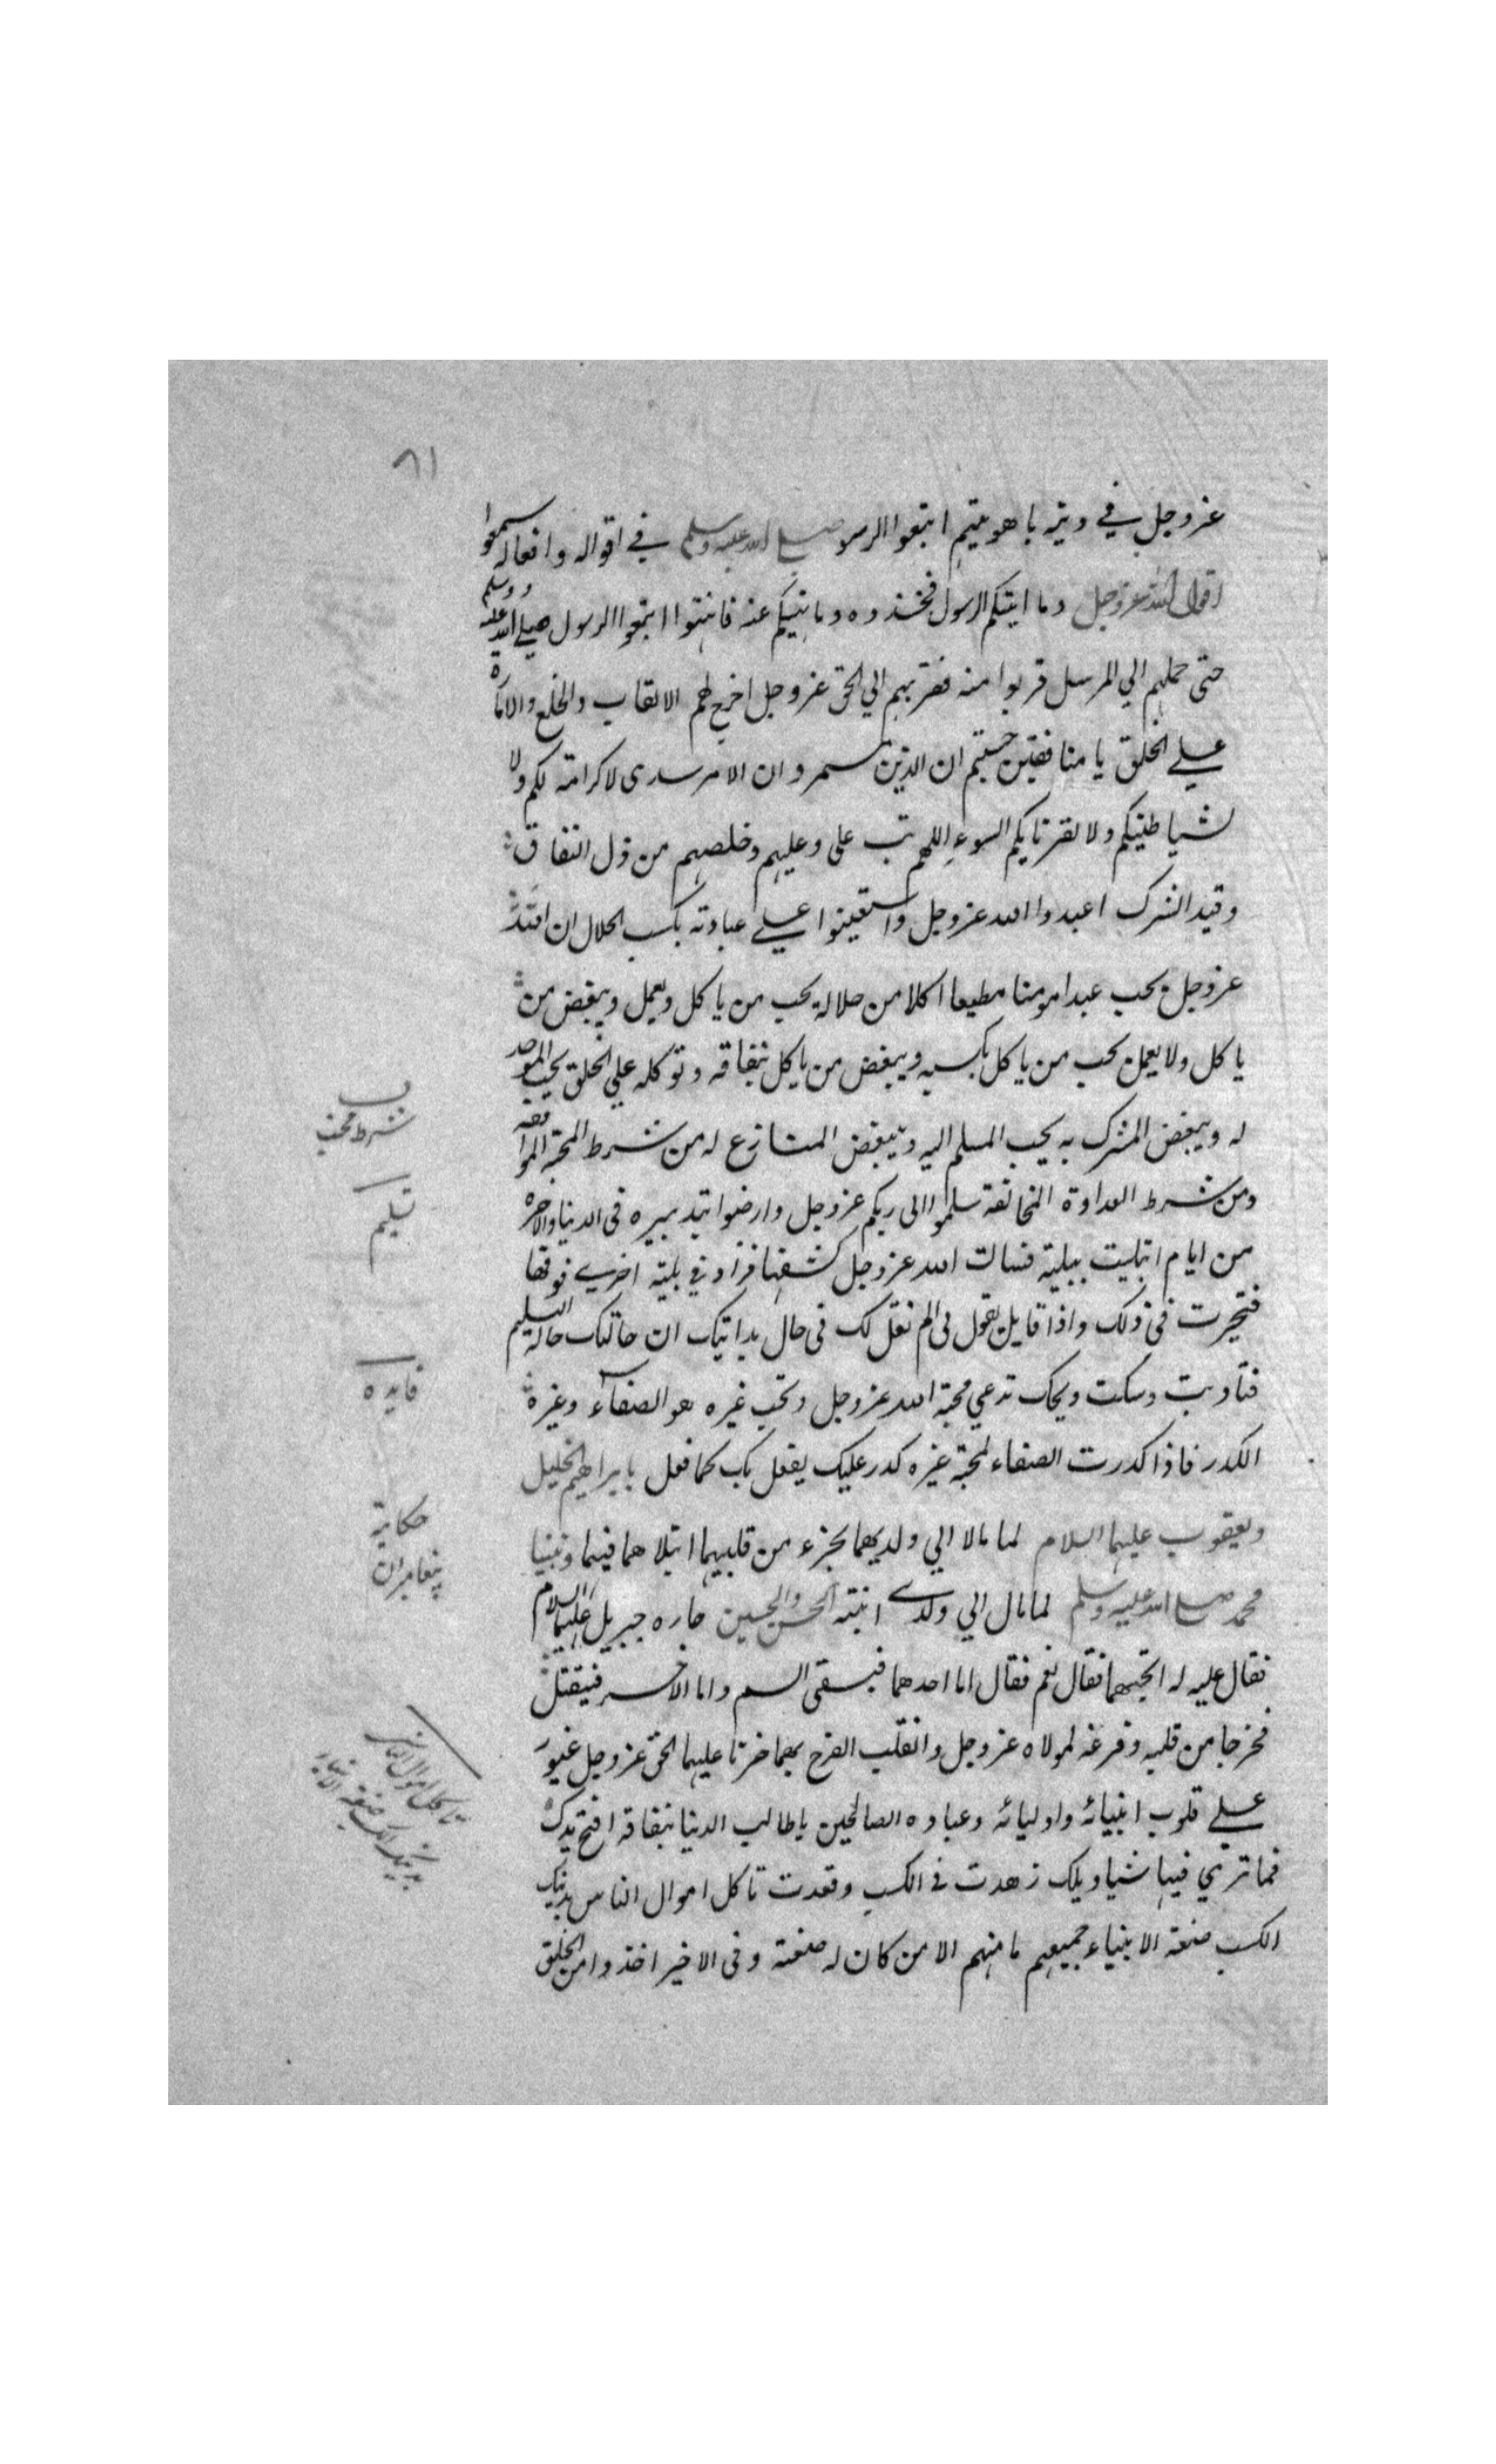 ٨١
عز وجل في دينه باهويتهم اتبعوا الرسول صلى الله عليه وسلم في اقواله وافعاله سمعوا
قول الله عز وجل وما اتيكم الرسول فخذوه وما نهيكم عنه فانتهوا اتبعوا الرسول صلي الله عليه وسلم
حتى حملهم الي المرسل قربوا منه فقربهم الي الحق عز وجل اخرج لهم الالقاب والخلع والامارة
علي الخلق يا منافقين حسبتم ان الدين سمر وان الامر سدى لا كرامة لكم ولا
لشياطينكم ولا لقرنايكم السوء اللهم تب على وعليهم وخلصهم من ذل النفاق
وقيد الشرك اعبدوا الله عز وجل واستعينوا علي عبادته بكسب الحلال ان الله
عز وجل يحب عبدا مومنا مطيعا اكلا من حلاله يحب من ياكل ويعمل ويبغض من
ياكل ولا يعمل يحب من ياكل بكسبه ويبغض من ياكل بنفاقه وتوكله علي الخلق يحب الموحد
له ويبغض المشرك به يحب المسلم اليه ويبغض المنازع له من شرط المحبة الموافقه
ومن شرط العداوة المخالفة سلموا الى ربكم عز وجل وارضوا بتدبيره فى الدنيا والاخرة
من ايام ابتليت ببلية فسالت الله عز وجل كشفها فزادني بلية اخرى فوقها
فتحيرت في ذلك واذا قايل يقول لى الم نقل لك في حال بدايتك ان حالتك حالة التسليم
فتادبت وسكت ويحك تدعي محبة الله عز وجل وتحب غيره هو الصفاء وغيره
الكدر فاذا كدرت الصفاء لمحبة غيره كدر عليك يفعل بك كما فعل بابراهيم الخليل
ويعقوب عليهما السلام لما مالا الي ولديهما بجزء من قلبيهما ابتلاهما فيهما ونبينا
محمد صلى الله عليه وسلم لما مال الي ولدي ابنته الحسن والحسين جاءه جبريل عليهما السلام
فقال عليه له اتحبهما فقال نعم فقال اما احدهما فيسقى السم واما الاخر فيقتل
فخرجا من قلبه وفرغه لمولاه عز وجل وانقلب الفرح بهما حزنا عليهما الحق عز وجل غيور
علي قلوب انبيائه واوليائه وعباده الصالحين يا طالب الدنيا بنفاقه افتح يدك
فما ترى فيها شيا ويلك زهدت في الكسب وقعدت تاكل اموال الناس بدينك
الكسب صنعة الانبياء جميعهم ما منهم الا من كان له صنعة وفى الاخير اخذوا من الخلق
شرط محبت
تسليم
فايده
حكاية
پيغامبران
تاكل اموال الناس
بدينك الكسب صنعة الانبياء